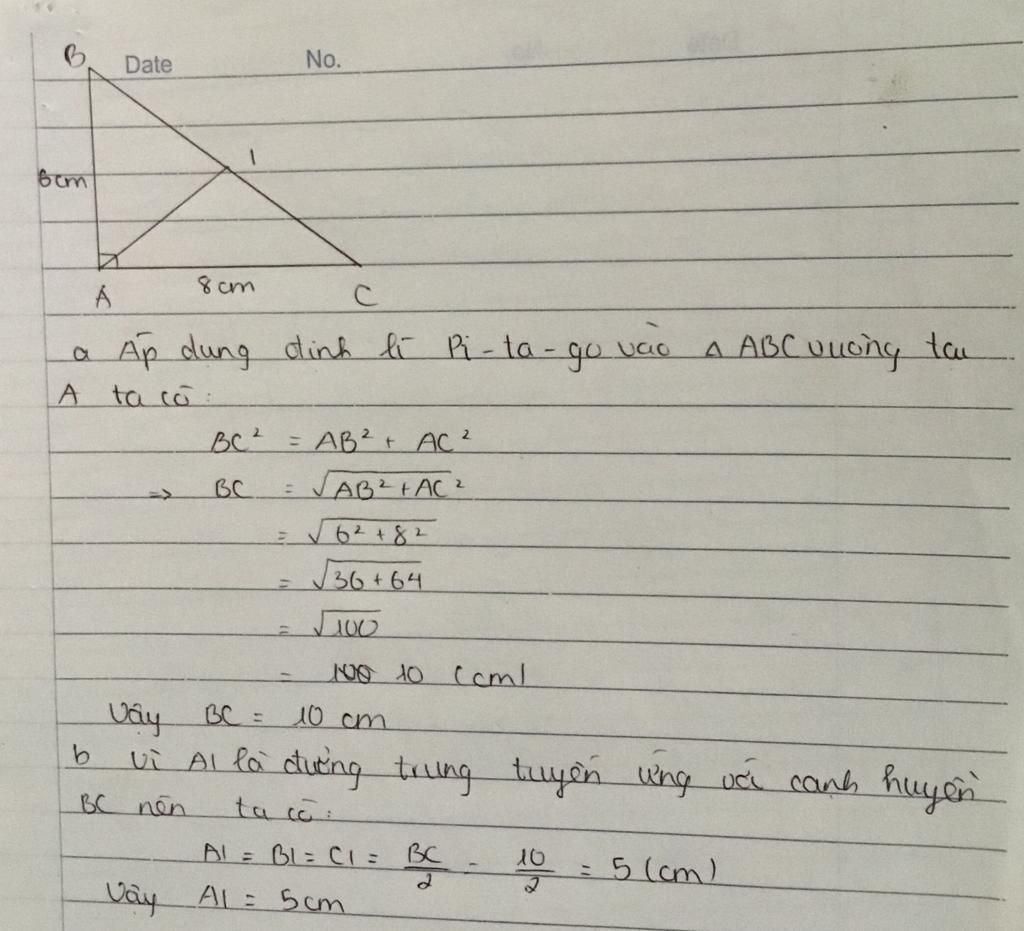 B Date No.
I
6cm
A 8cm C
a Áp dụng định lí Pi-ta-go vào Δ ABC vuông tại
A ta có:
BC² = AB² + AC²
=> BC = √AB²+AC²
= √6²+8²
= √36+64
= √100
= 10 (cm)
Vậy BC = 10 cm
b Vì AI là đường trung tuyến ứng với cạnh huyền
BC nên ta có:
AI = BI = CI = BC/2 = 10/2 = 5 (cm)
Vậy AI = 5cm